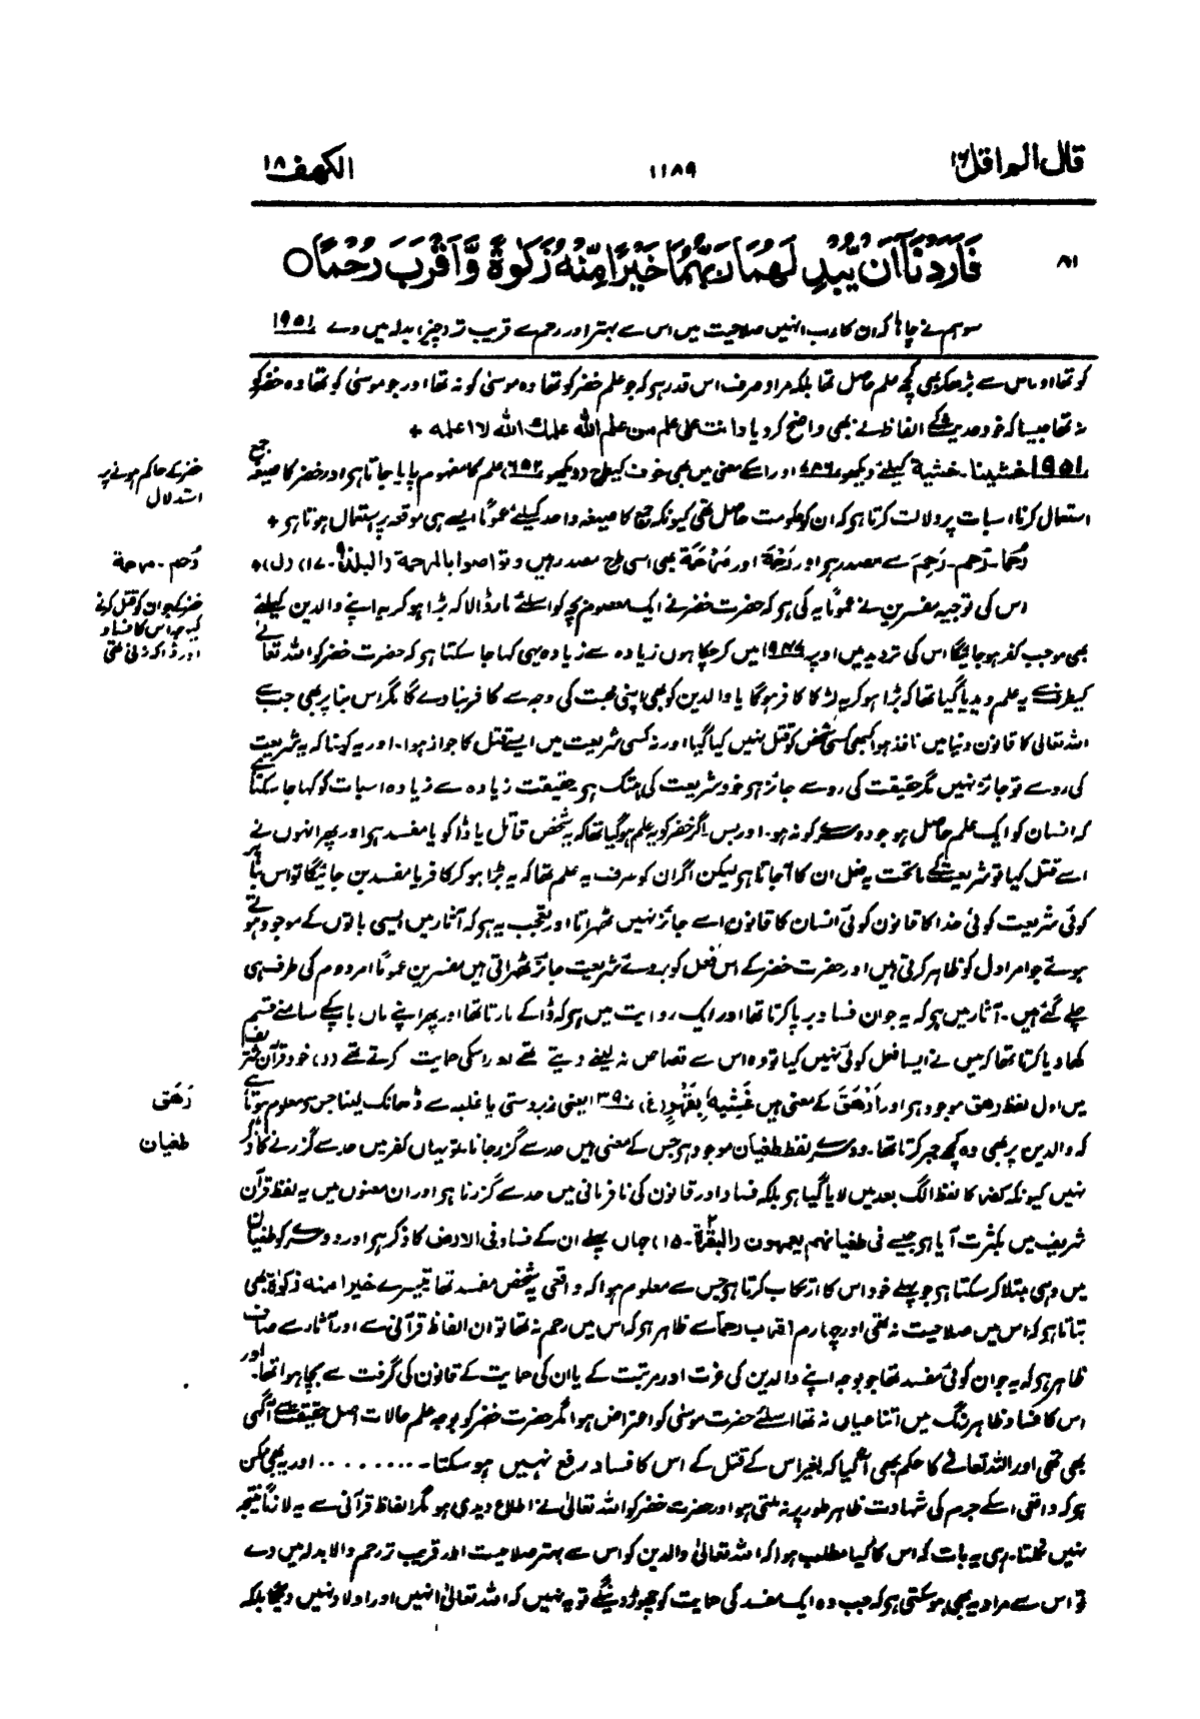 قال الم اقل ۱۶
۱۱۸۹
الکہف ۱۸
۸۱
فَاَرَدْنَاۤ اَنْ یُّبْدِلَهُمَا رَبُّهُمَا خَیْرًا مِّنْهُ زَكٰوةً وَّ اَقْرَبَ رُحْمًا ○
سو ہم نے چاہا کہ ان کا رب انہیں صلاحیت میں اس سے بہتر اور رحم سے قریب تر (چیز) بدلہ میں دے ۱۹۵۱
کو تھا اور اس سے بڑھکر بھی کچھ علم حاصل تھا بلکہ مراد صرف اس قدر ہے کہ جو علم خضر کو تھا وہ موسیٰ کو نہ تھا اور جو موسیٰ کو تھا وہ خضر کو
نہ تھا جیسا کہ خود حدیث کے الفاظ نے بھی واضح کر دیا وانت علی علم من علم اللہ علمک اللہ لا اعلمہ +
۱۹۵۱ خشینا۔ خشیة کیلئے دیکھو ۴۸۶ اور اسکے معنی میں بھی خوف کیطرح (دیکھو ۶۵۲) علم کا مفہوم پایا جاتا ہے اور خضر کا صیغہ جمع
خضر کے حاکم ہونے پر
استدلال
استعمال کرنا اس بات پر دلالت کرتا ہے کہ ان کو حکومت حاصل تھی کیونکہ جمع کا صیغہ واحد کیلئے عموماً ایسے ہی موقعہ پر استعمال ہوتا ہے +
رُحما۔ رُحم۔ رَحِمَ سے مصدر ہے اور رَحْمَة اور مَرْحَمَة بھی اسی طرح مصدر ہیں وتواصوا بالمرحمة (البلد ۹۰۔۱۷) (ل) +
رُحم۔ مرحمة
اس کی توجیہ مفسرین نے عموماً یہ کی ہے کہ حضرت خضر نے ایک معصوم بچہ کو اسلئے مار ڈالا کہ بڑا ہو کر یہ اپنے والدین کیلئے
خضر کے جوان کو قتل کرنے
کی وجہ اس کا فساد
اور ڈاکہ زنی تھی
بھی موجب کفر ہو جائیگا اس کی تردید میں اوپر ۱۹۴۹ میں کر چکا ہوں زیادہ سے زیادہ یہی کہا جا سکتا ہے کہ حضرت خضر کو اللہ تعالیٰ نے
کیطرف سے یہ علم دیدیا گیا تھا کہ بڑا ہو کر یہ لڑکا کافر ہوگا یا والدین کو بھی اپنی محبت کی وجہ سے کافر بنا دے گا مگر اس بنا پر بھی جب سے
اللہ تعالیٰ کا قانون دنیا میں نافذ ہوا کبھی کسی شخص کو قتل نہیں کیا گیا اور نہ کسی شریعت میں ایسے قتل کا جواز ہوا۔ اور یہ کہنا کہ یہ شریعت
کی رو سے تو جائز نہیں مگر حقیقت کی رو سے جائز ہے خود شریعت کی ہتک ہے حقیقت زیادہ سے زیادہ اس بات کو کہا جا سکتا ہے
کہ انسان کو ایک علم حاصل ہو جو دوسرے کو نہ ہو۔ اور بس۔ اگر خضر کو یہ علم ہو گیا تھا کہ یہ شخص قاتل یا ڈاکو یا مفسد ہے اور پھر انہوں نے
اسے قتل کیا تو شریعت کے ماتحت یہ فعل ان کا آ جاتا ہے لیکن اگر ان کو صرف یہ علم تھا کہ یہ بڑا ہو کر کافر یا مفسد بن جائیگا تو اس بنا پر
کوئی شریعت کوئی خدا کا قانون کوئی انسان کا قانون اسے جائز نہیں ٹھہراتا اور تعجب یہ ہے کہ آثار میں ایسی باتوں کے موجود ہوتے
ہوئے جو امر اول کو ظاہر کرتی ہیں اور حضرت خضر کے اس فعل کو بروئے شریعت جائز ٹھہراتی ہیں مفسرین عموماً امر دوم کی طرف ہی
چلے گئے ہیں۔ آثار میں ہے کہ یہ جوان فساد برپا کرتا تھا اور ایک روایت میں ہے کہ ڈاکے مارتا تھا اور پھر اپنے ماں باپ کے سامنے قسم
کھا دیا کرتا تھا کہ میں نے ایسا فعل کوئی نہیں کیا تو وہ اس سے قصاص نہ لینے دیتے تھے اور اسکی حمایت کرتے تھے (ر) خود قرآن شریف
میں اول لفظ رھق موجود ہے اور اَرْهَقَ کے معنی ہیں غَشِیَهُ بِقَهْرٍ (غ)، ۱۳۹۰ یعنی زبردستی یا غلبہ سے ڈھانک لینا جس سے معلوم ہوتا ہے
رَهَق
کہ والدین پر بھی وہ کچھ جبر کرتا تھا۔ دوسرے لفظ طغیان موجود ہے جس کے معنی ہیں حد سے گزر جانا تو یہاں کفر میں حد سے گزرنے کا ذکر
طغیان
نہیں کیونکہ کفر کا لفظ الگ بعد میں لایا گیا ہے بلکہ فساد اور قانون کی نافرمانی میں حد سے گزرنا ہے اور ان معنوں میں یہ لفظ قرآن
شریف میں بکثرت آیا ہے جیسے فی طغیانہم یعمہون (البقرة ۲۔ ۱۵) جہاں پہلے ان کے فساد فی الارض کا ذکر ہے اور دوسرے کو طغیان
میں وہی مبتلا کر سکتا ہے جو پہلے خود اس کا ارتکاب کرتا ہے جس سے معلوم ہوا کہ واقعی یہ شخص مفسد تھا تیسرے خیرا منہ زکوٰة بھی
بتاتا ہے کہ اس میں صلاحیت نہ تھی اور چہارم اقرب رحماً سے ظاہر ہے کہ اس میں رحم نہ تھا تو ان الفاظ قرآنی سے اور آثار سے صاف
ظاہر ہے کہ یہ جوان کوئی مفسد تھا جو بوجہ اپنے والدین کی عزت اور مرتبت کے یا ان کی حمایت کے قانون کی گرفت سے بچا ہوا تھا۔ اور
اس کا فساد ظاہر رنگ میں اتنا عیاں نہ تھا اسلئے حضرت موسیٰ کو اعتراض ہوا مگر حضرت خضر کو بوجہ علم حالات اصل حقیقت سے آگہی
بھی تھی اور اللہ تعالےٰ کا حکم بھی آ گیا کہ بغیر اس کے قتل کے اس کا فساد رفع نہیں ہو سکتا۔ ........ اور یہ بھی ممکن
ہے کہ واقعی اسکے جرم کی شہادت ظاہر طور پر نہ ملتی ہو اور حضرت خضر کو اللہ تعالیٰ نے اطلاع دیدی ہو مگر الفاظ قرآنی سے یہ لازماً نتیجہ
نہیں نکلتا۔ رہی یہ بات کہ اس کا کیا مطلب ہوا کہ اللہ تعالیٰ والدین کو اس سے بہتر صلاحیت اور قریب تر رحم والا بدلہ میں دے
تو اس سے مراد یہ بھی ہو سکتی ہے کہ جب وہ ایک مفسد کی حمایت کو چھوڑ دینگے تو یہ نہیں کہ اللہ تعالیٰ انہیں اور اولاد نہیں دیگا بلکہ